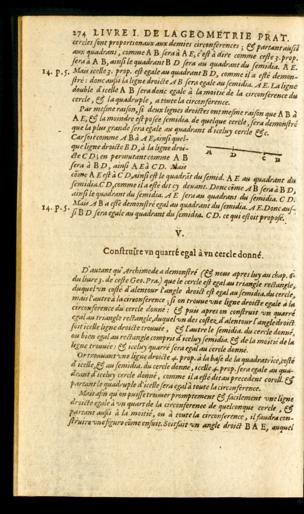 274 LIVRE I. DE LA GEOMETRIE PRAT.
cercles sont proportionaux aux demies circonferences; & partant aussi
aux quadrans, comme AB sera à AE, c'est à dire comme ceste 3. prop.
sera à AB, ainsi le quadrant BD sera au quadrant du semidia. AE.
14. p. 5. Mais icelle 3. prop. est egale au quadrant BD, comme il a esté demon-
stré: donc aussi la ligne droicte AB sera egale au semidia. AE. La ligne
double d'icelle AB sera donc egale à la moitié de la circonference du
cercle, & la quadruple, a toute la circonference.
Par mesme raison, si deux lignes droictes ont mesme raison que AB à
AE, & la moindre est posee semidia. de quelque cercle, sera demonstré
que la plus grande sera egale au quadrant d'iceluy cercle &c.
Car soit comme AB à AE, ainsi quel-
que ligne droicte BD, à la ligne droi-
cte CD; en permutant comme AB
sera à BD, ainsi AE à CD. Mais
A D C B
côme AE est à CD, ainsi est le quadrāt du semid. AE au quadrant du
semidia. CD, comme il a esté dit cy devant. Donc côme AB sera à BD,
ainsi le quadrant du semidia. AE sera au quadrant du semidia. CD.
Mais AB a esté demonstré egal au quadrant du semidia. AE. Donc aus-
14. p. 5. si BD sera egale au quadrant du semidia. CD. ce qui estoit proposé.
V.
Construire vn quarré egal à vn cercle donné.
D'autant qu'Archimede a demonstré (& nous apres luy au chap. 6.
du liure 3. de ceste Geo. Pra.) que le cercle est egal au triangle rectangle,
duquel vn costé d'alentour l'angle droict est egal au semidia. du cercle,
mais l'autre à la circonference; si on trouue vne ligne droicte egale à la
circonference du cercle donné: & puis apres on construit vn quarré
egal au triangle rectangle, duquel vn des costez d'alentour l'angle droict
soit icelle ligne droicte trouuée, & l'autre le semidia. du cercle donné,
ou bien egal au rectangle compris d'iceluy semidia. & de la moitié de la
ligne trouuée: & iceluy quarré sera egal au cercle donné.
Or trouuant vne ligne droicte 4. prop. à la base de la quadratrice, costé
d'icelle, & au semidia. du cercle donné, icelle 4. prop. sera egale au qua-
drant d'iceluy cercle donné, comme il a esté dit au precedent coroll. &
partant le quadruple d'icelle sera egal à toute la circonference.
Mais afin qu'on puisse trouuer promptement & facilement vne ligne
droicte egale à vn quart de la circonference de quelconque cercle, &
partant aussi à la moitié, ou à toute la circonference, il faudra con-
struire vne figure côme ensuit. Soit fait vn angle droict BAE, auquel